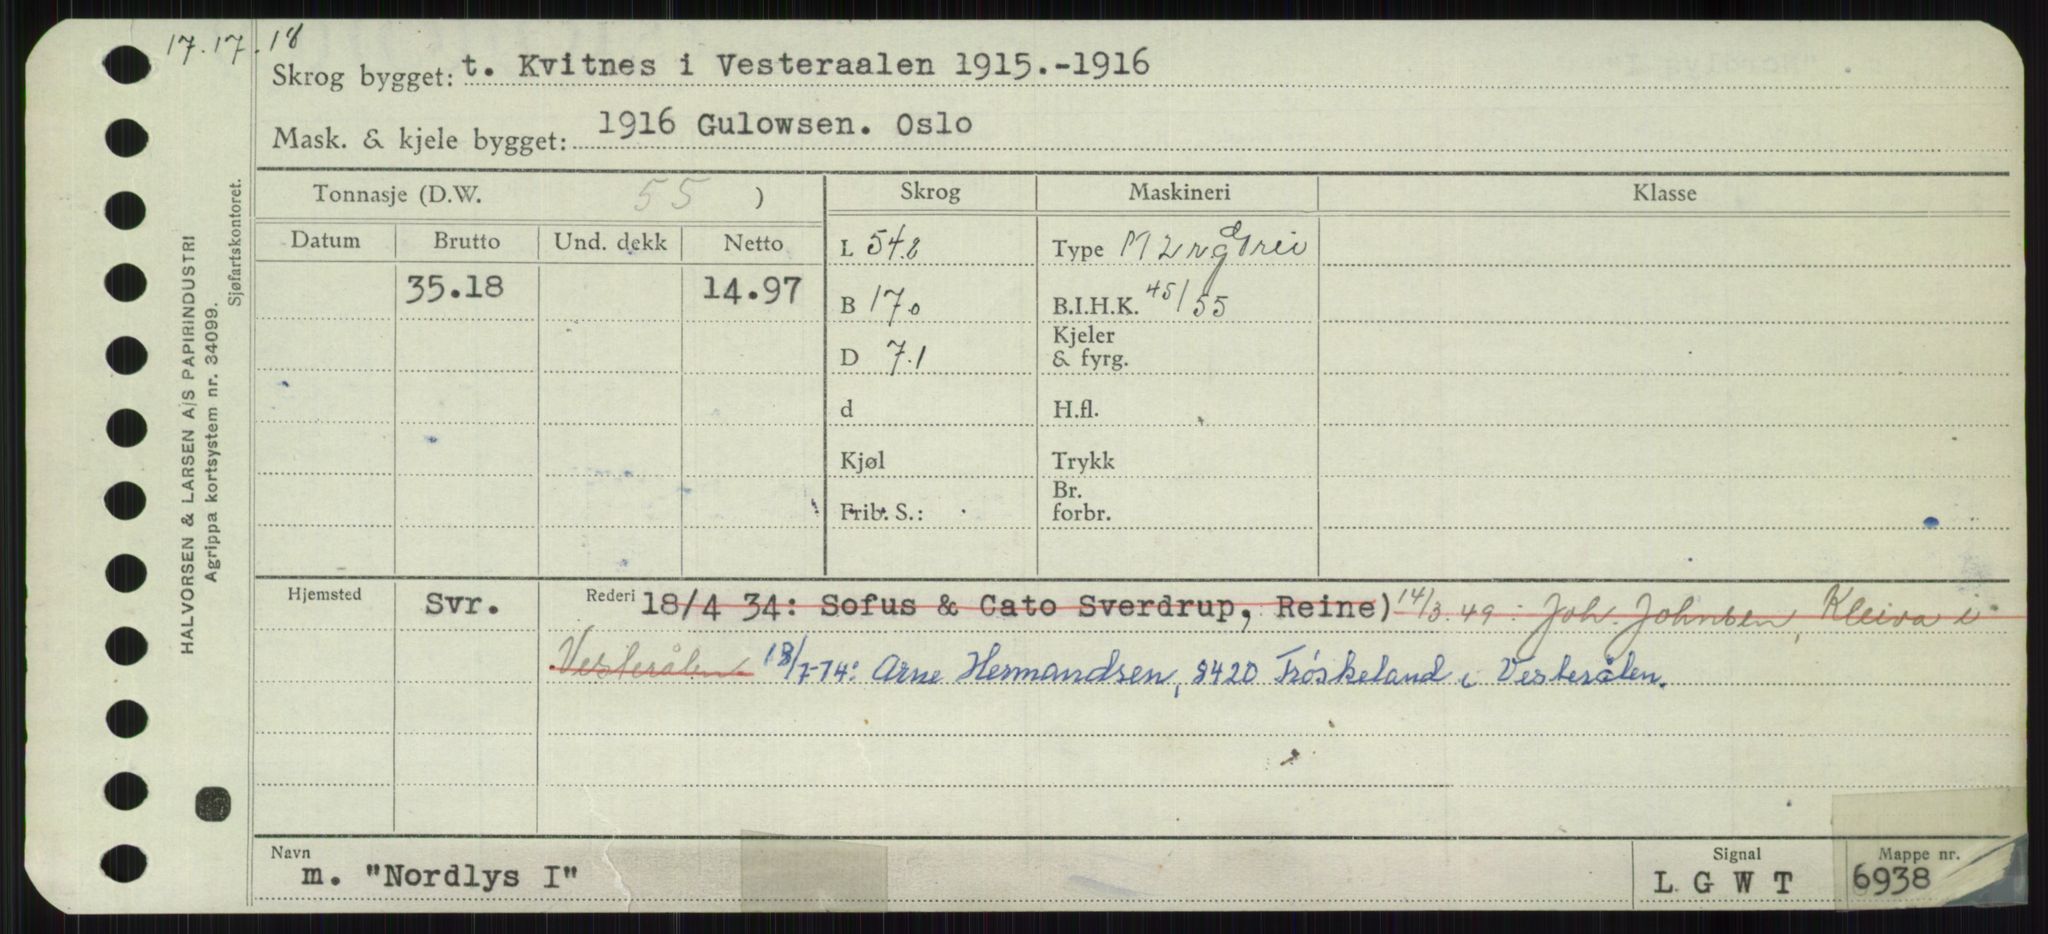 17.17.18
Skrog bygget: t. Kvitnes i Vesteraalen 1915.-1916
Mask. & kjele bygget: 1916 Gulowsen. Oslo
HALVORSEN & LARSEN A/S PAPIRINDUSTRI
Agrippa kortsystem nr. 34099.
Sjøfartskontoret.
Tonnasje (D.W. 55 ) Skrog Maskineri Klasse
Datum Brutto Und. dekk Netto L 54.8 Type
35.18 14.97 B 17.0 B.I.H.K. 45/55
D 7.1 Kjeler & fyrg.
d H.fl.
Kjøl Trykk
Frib. S.: Br. forbr.
Hjemsted Svr. Rederi 18/4 34: Sofus & Cato Sverdrup, Reine) 14/3.49: Joh. Johnsen, Kleiva i
Vesterålen 18/7-74: Arne Hermandsen, 8420 Frøskeland i Vesterålen.
Navn Signal Mappe nr.
m. "Nordlys I" L G W T 6938